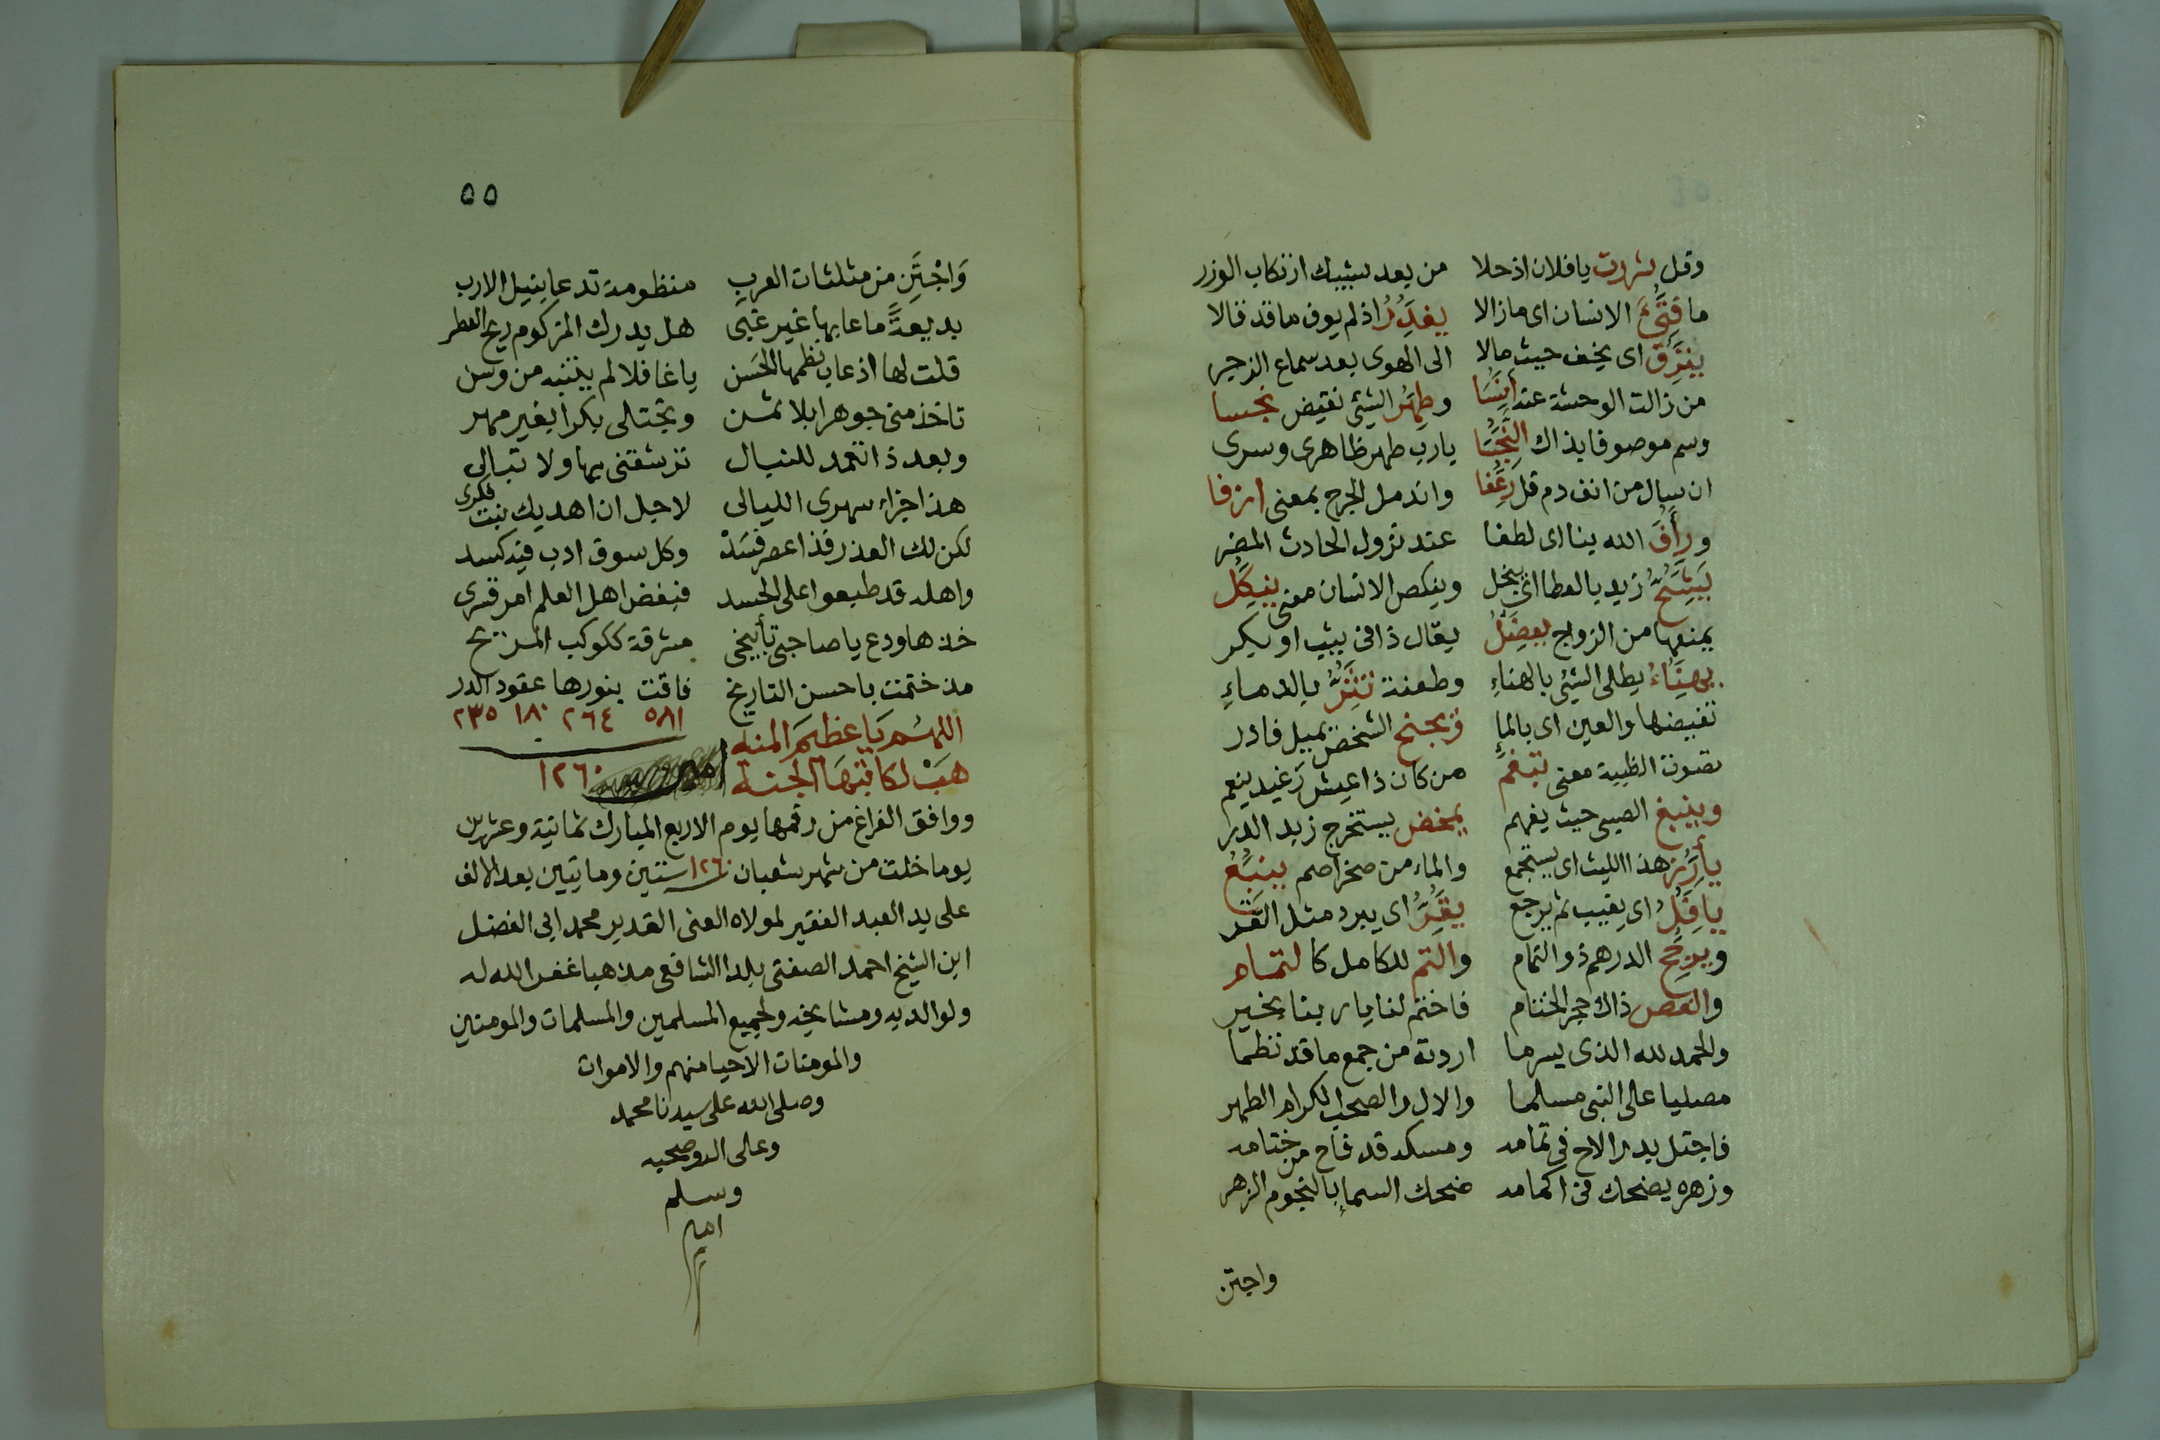 وقل شررت يا فلان اذ حلا من بعد سببك ارتكاب الوزر
ما فتئ الانسان اى ما زالا يغدر اذ لم يوف ما قد قالا
ينزق اى يخف حيث مالا الى الهوى بعد سماع الزجر
من زالت الوحشة عنه انسا وطهر الشئ نقيض نجسا
وسم موصوفا بذاك النجسا يارب طهر ظاهرى وسرى
ان سال من انف دم قل رعفا واندمل الجرح بمعنى ارفا
ورأف الله بنا اى لطفا عند نزول الحادث المضر
يشح زيد بالعطا اى يبخل وينكص الانسان معنى ينكل
يمنعها من الزواج يعضل يقال ذا فى ثيب او بكر
يهناء يطلى الشئ بالهناء وطعنة تنز بالدماء
تفيضها والعين اى بالماء ويجنح الشخص يميل فادر
تصوت الظبية معنى تبغم من كان ذا عيش رغيد ينعم
وينبغ الصبى حيث يفهم يمخض يستخرج زبد الدر
يأرز هذا الليث اى يستجمع والماء من صخر اصم ينبع
يافل اى يغيب ثم يرجع يقر اى يبرد مثل القر
ويرجح الدرهم ذو التمام والتم للكامل كالتمام
والفص ذاك حجر الختام فاختم لنا يا ربنا بخير
والحمد لله الذى يسر ما اردته من جمع ما قد نظما
مصليا على النبى مسلما والال والصحب الكرام الطهر
فاجتل بدرا لاح فى تمامه ومسكه قد فاح من ختامه
وزهره يضحك فى اكمامه ضحك السماء بالنجوم الزهر
واجتن
٥٥
وَاجْتَنِ من مثلثات العرب منظومة تدعا بنيل الارب
بديعةً ما عابها غير غبى هل يدرك المزكوم ريح العطر
قلت لها اذ عاب نظمها الحسن يا غافلا لم ينتبه من وسن
تاخذ منى جوهرا بلا ثمن وتجتلى بكرا بغير مهر
وبعد ذا تمد للنبال ترشقنى بها ولا تبالى
هذا جزاء سهرى الليالى لاجل ان اهديك بنت فكرى
لكن لك العذر فذا عصر فسد وكل سوق ادب فيه كسد
واهله قد طبعوا على الحسد فبغض اهل العلم امر قسرى
خذها ودع يا صاحبى توبيخى مشرقة ككوكب المريخ
مذ ختمت باحسن التاريخ فاقت بنورها عقود الدر
٥٨١ ٢٦٤ ١٨٠ ٢٣٥
اللهم يا عظيم المنه
هب لكاتبها الجنة امين ١٢٦٠
ووافق الفراغ من رقمها يوم الاربع المبارك ثمانية وعشرين
يوما خلت من شهر شعبان ١٢٦٠ ستين وماتيين بعد الالف
على يد العبد الفقير لمولاه الغنى القدير محمد ابى الفضل
ابن الشيخ احمد الصفتى بلدا الشافعى مذهبا غفر الله له
ولوالديه ومشايخه ولجميع المسلمين والمسلمات والمومنين
والمومنات الاحيا منهم والاموات
وصلى الله على سيدنا محمد
وعلى اله وصحبه
وسلم
امين